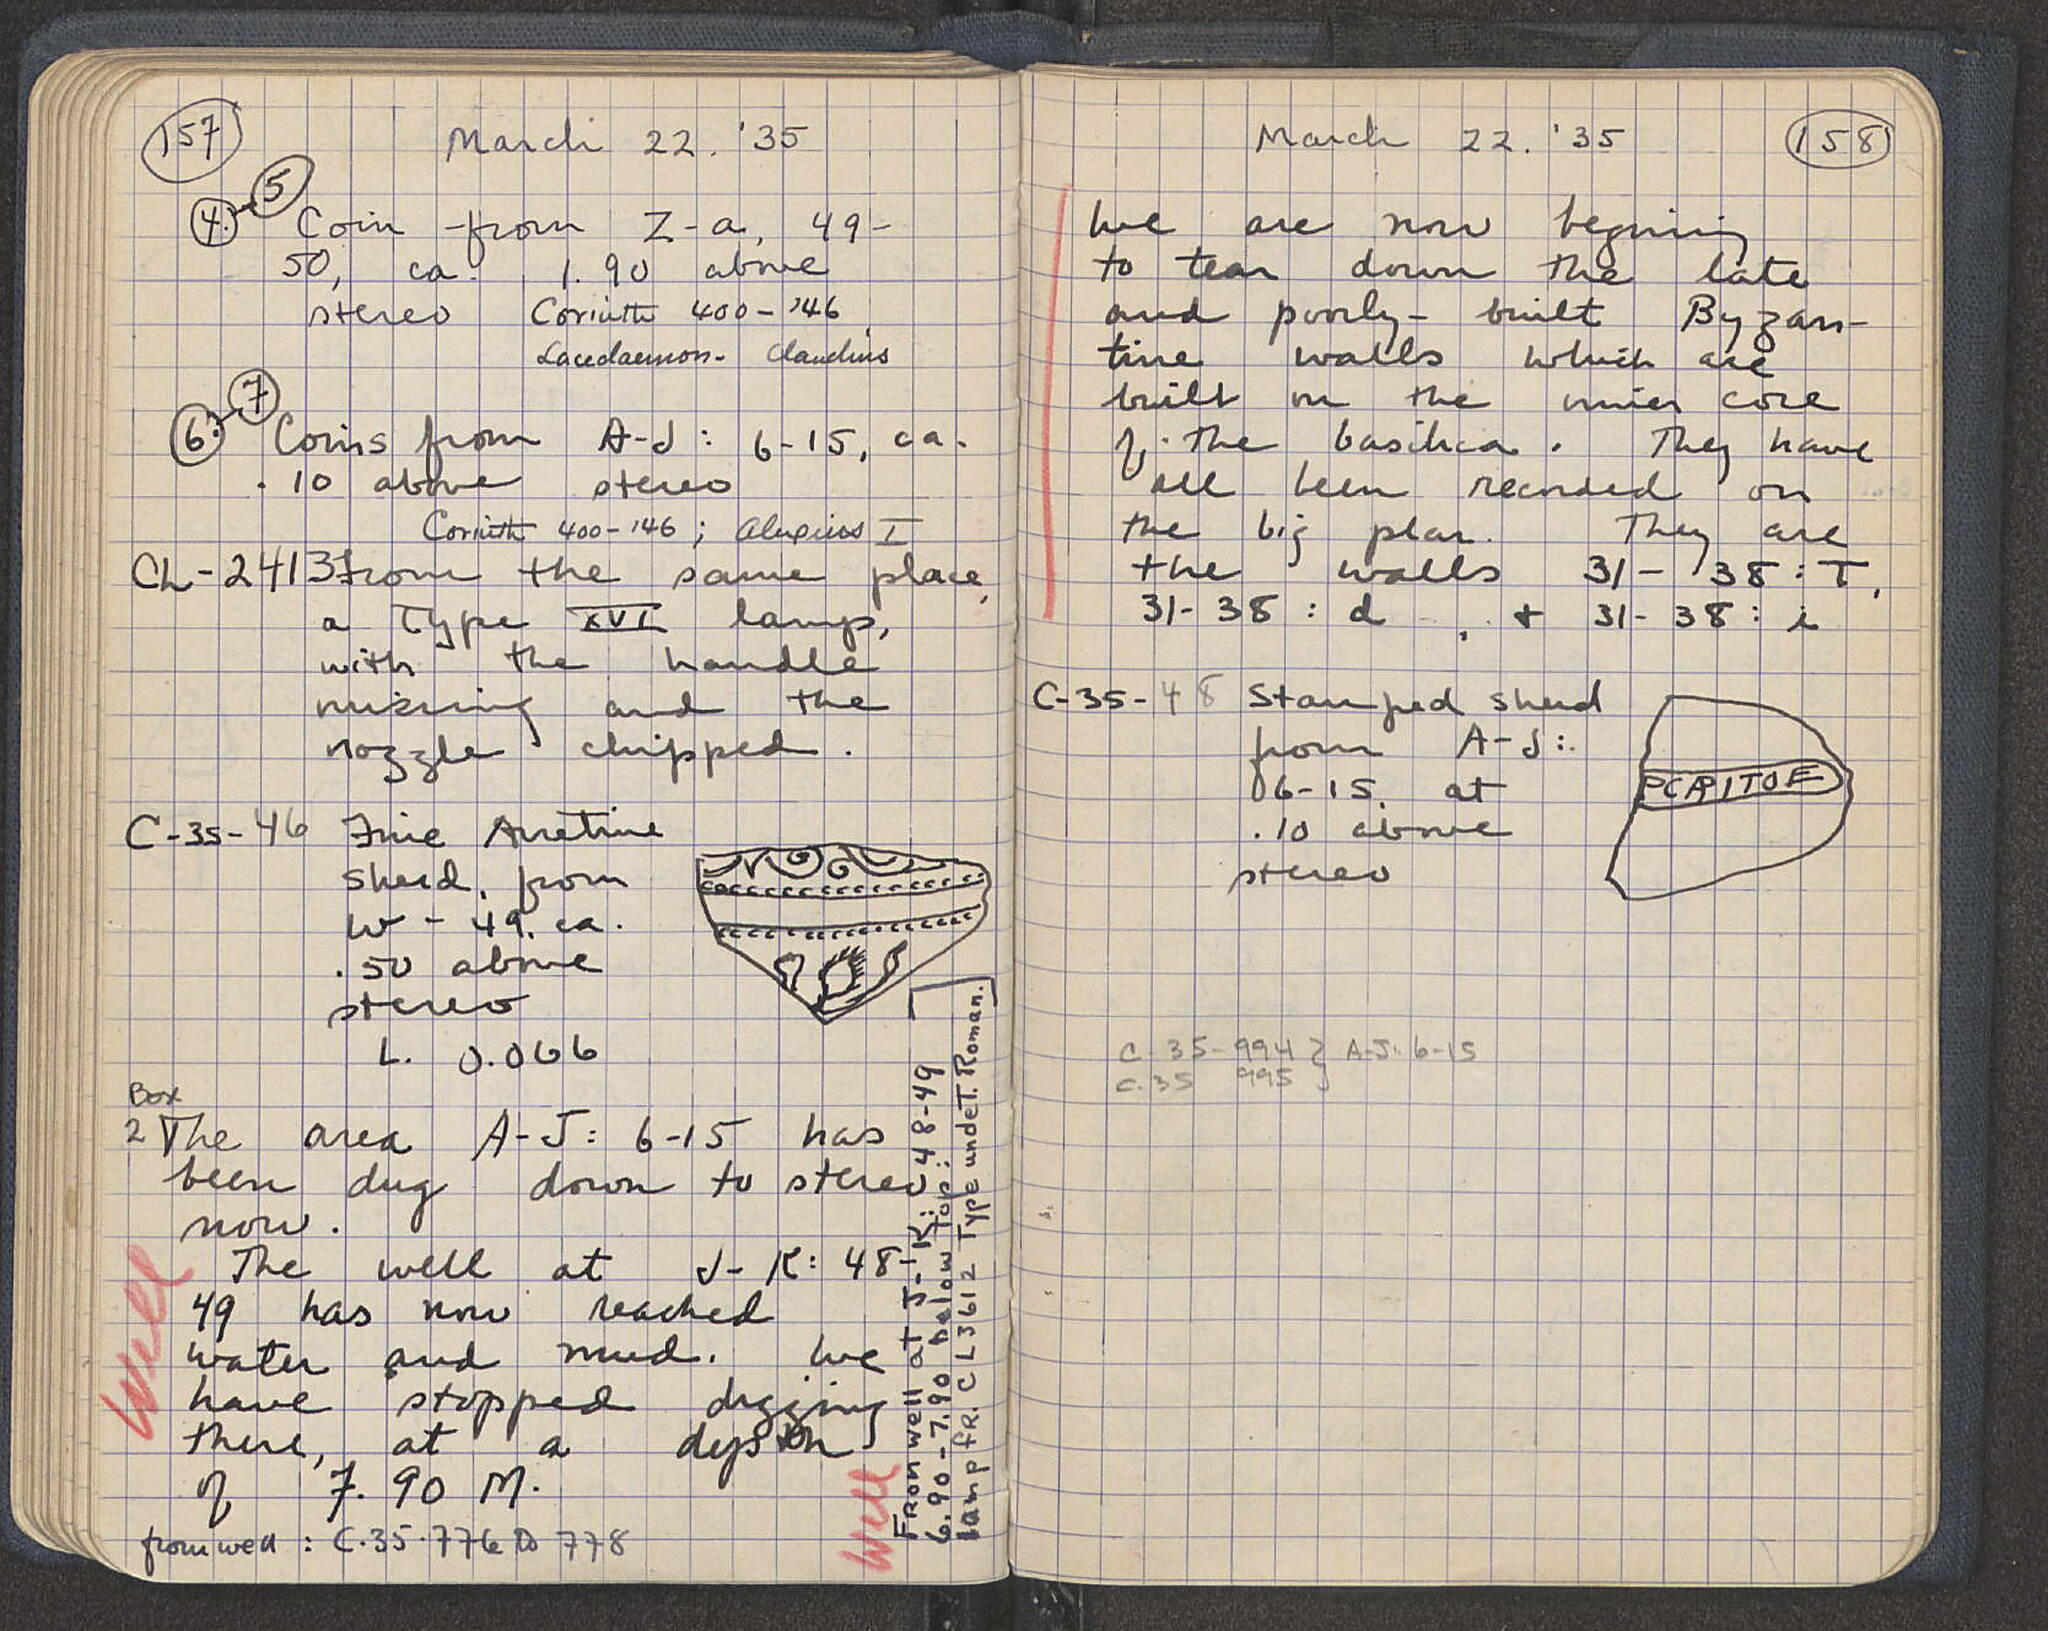 157
March 22. '35
4.-5 Coin from Z-a, 49-
50, ca. 1.90 above
stereo Corinth 400-146
Lacedaemon- Claudius
6.-7 Coins from A-J: 6-15, ca.
.10 above stereo
Corinth 400-146; Alexius I
CL-2413 From the same place,
a Type XVI lamp,
with the handle
missing and the
nozzle chipped.
C-35-46 Fine Arretine
sherd, from
W-49. ca.
.50 above
stereo
L. 0.066
Box
2 The area A-J: 6-15 has
been dug down to stereo
now.
Well
The well at J-K: 48-
49 has now reached
water and mud. We
have stopped digging
there, at a depth
of 7.90 M.
from well : C.35.776 to 778
Well
From well at J-K: 48-49
6.90-7.90 below top:
lamp fr. CL3612 Type undet. Roman.
March 22. '35
158
We are now begining
to tear down the late
and poorly-built Byzan-
tine walls which are
built on the inner core
of the basilica. They have
all been recorded on
the big plan. They are
the walls 31-38:T,
31-38:d, + 31-38:i
C-35-48 Stamped sherd
from A-J:
6-15, at
.10 above
stereo
PCRPITOF
C-35-994 } A-J: 6-15
C.35 995